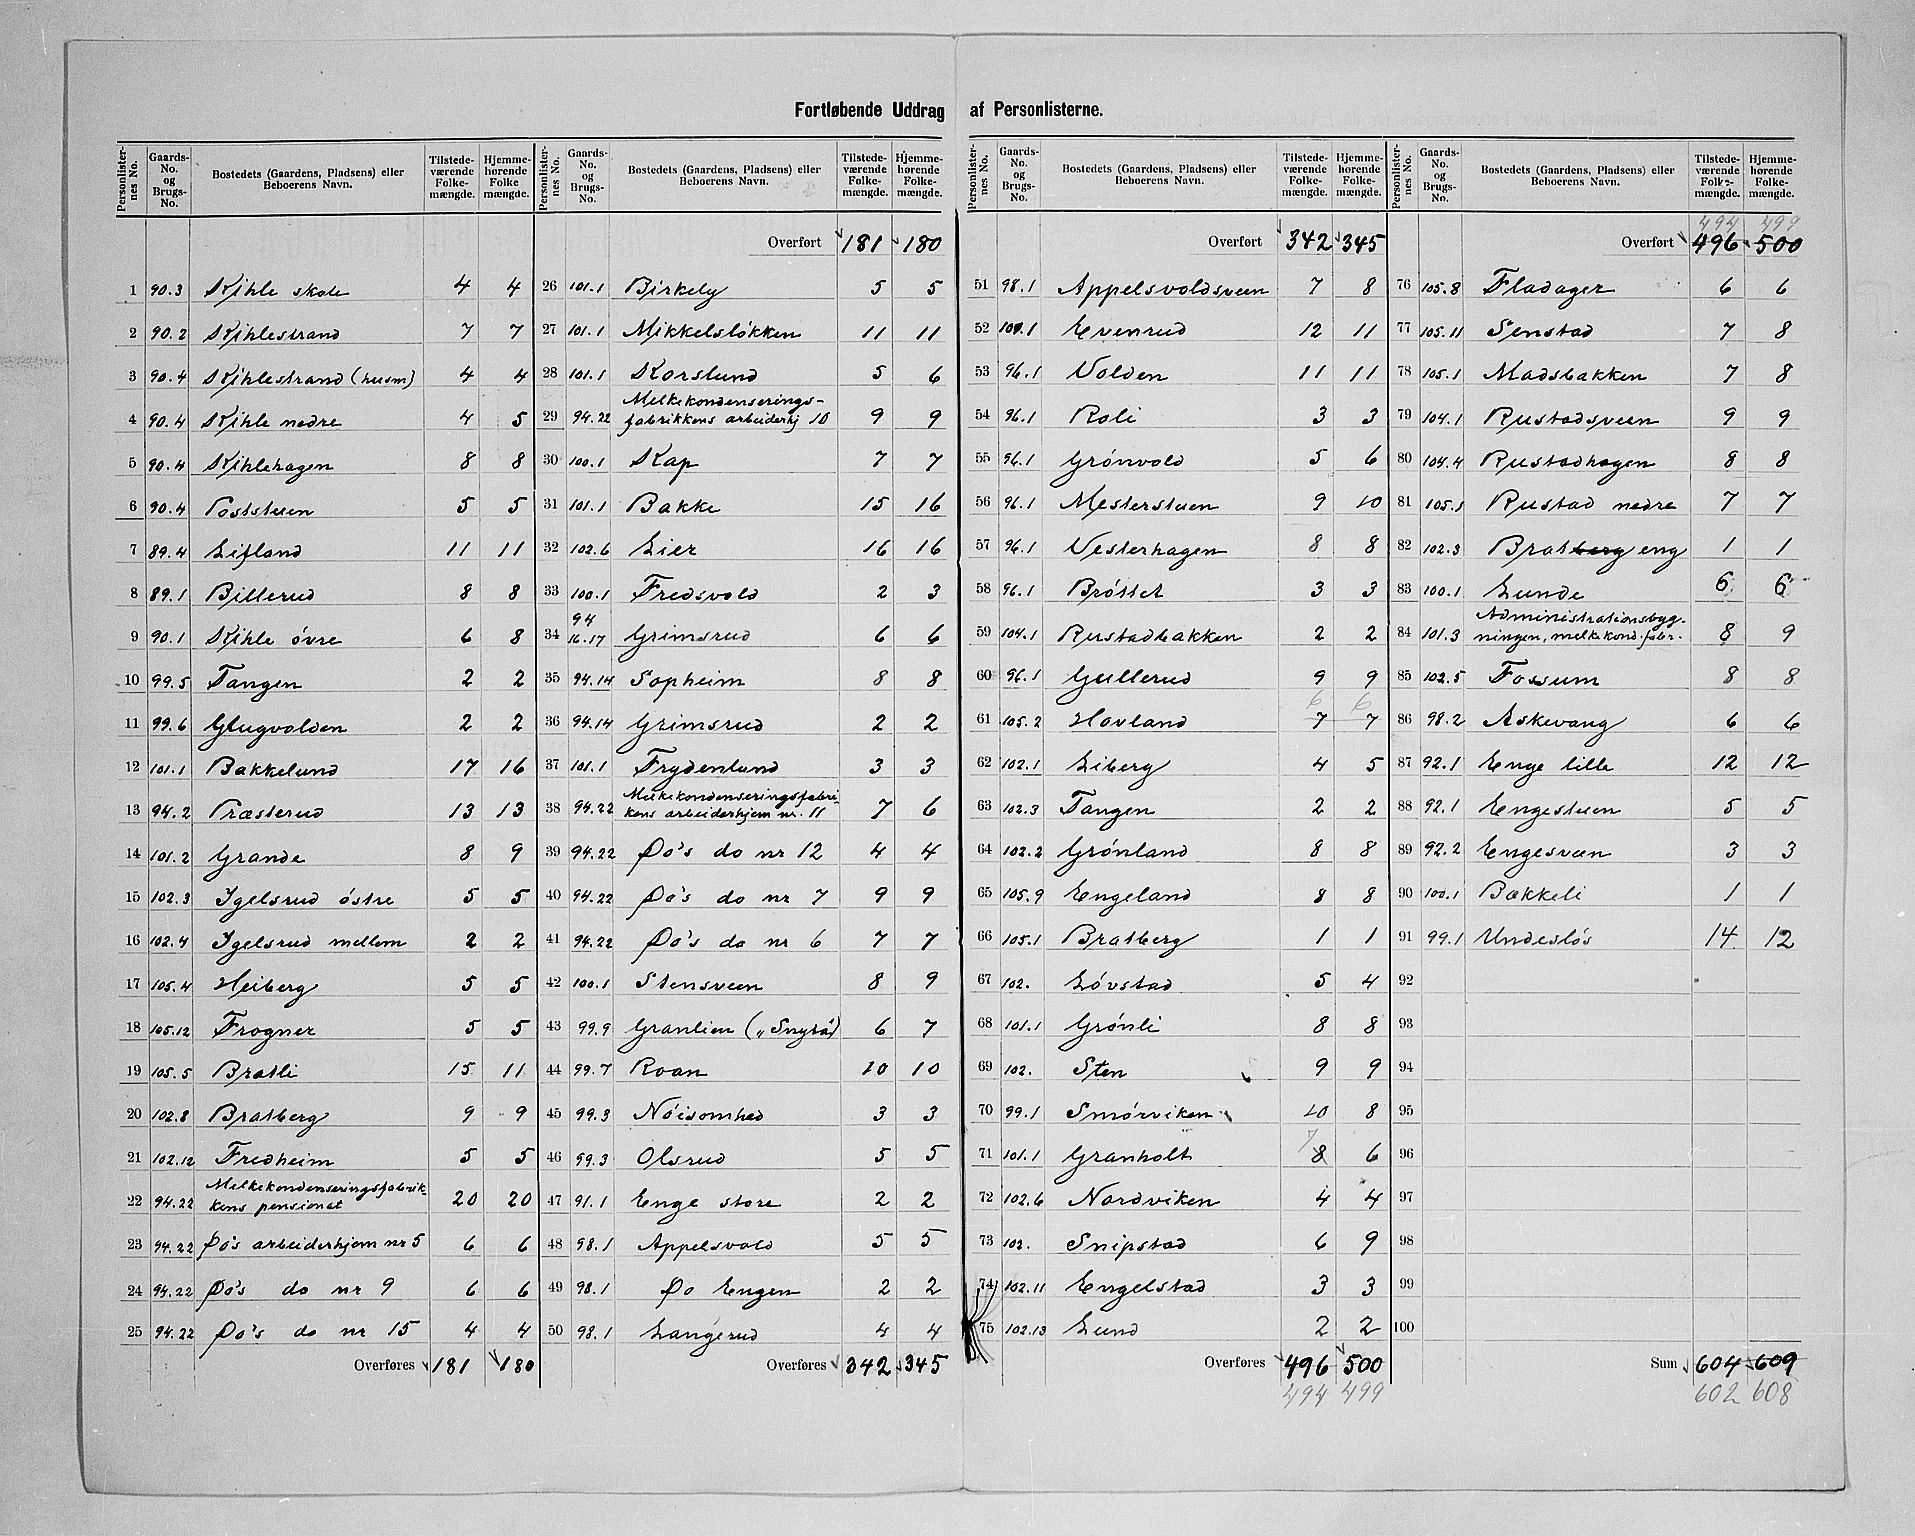 Fortløbende Uddrag af Personlisterne.
Personlister-nes No. | Gaards-No. og Brugs-No. | Bostedets (Gaardens, Pladsens) eller Beboerens Navn. | Tilstede-værende Folke-mængde. | Hjemme-hørende Folke mængde.
1 90.3 Kihle skole 4 4
2 90.2 Kihlestrand 7 7
3 90.4 Kihlestrand (husm) 4 4
4 90.4 Kihle nedre 4 5
5 90.4 Kihlehagen 8 8
6 90.4 Poststuen 5 5
7 89.4 Lifland 11 11
8 89.1 Billerud 8 8
9 90.1 Kihle övre 6 8
10 99.5 Tangen 2 2
11 99.6 Glugvolden 2 2
12 101.1 Bakkelund 17 16
13 94.2 Præsterud 13 13
14 101.2 Grande 8 9
15 102.3 Igelsrud östre 5 5
16 102.4 Igelsrud mellem 2 2
17 105.4 Heiberg 5 5
18 105.12 Frogner 5 5
19 105.5 Bratli 15 11
20 102.8 Bratberg 9 9
21 102.12 Fredheim 5 5
22 94.22 Melkekondenseringsfabrik-
kens pensionat 20 20
23 94.22 Do's arbeiderhjem nr 5 6 6
24 94.22 Do's do nr 9 6 6
25 94.22 Do's do nr 15 4 4
Overføres 181 180
Personlister-nes No. | Gaards-No. og Brugs-No. | Bostedets (Gaardens, Pladsens) eller Beboerens Navn. | Tilstede-værende Folke-mængde. | Hjemme-hørende Folke-mængde.
Overført 181 180
26 101.1 Birkely 5 5
27 101.1 Mikkelslökken 11 11
28 101.1 Korslund 5 6
29 94.22 Melkekondenserings-
fabrikkens arbeiderhj 10 9 9
30 100.1 Kap 7 7
31 101.1 Bakke 15 16
32 102.6 Lier 16 16
33 100.1 Fredsvold 2 3
34 94 16.17 Grimsrud 6 6
35 94.14 Sopheim 8 8
36 94.14 Grimsrud 2 2
37 101.1 Frydenlund 3 3
38 94.22 Melkekondenseringsfabri-
kens arbeiderhjem nr. 11 7 6
39 94.22 Do's do nr 12 4 4
40 94.22 Do's do nr 7 9 9
41 94.22 Do's do nr 6 7 7
42 100.1 Stensveen 8 9
43 99.9 Granlien („Snyta") 6 7
44 99.7 Roan 10 10
45 99.3 Nöisomhed 3 3
46 99.3 Olsrud 5 5
47 91.1 Enge store 2 2
48 98.1 Appelsvold 5 5
49 98.1 Do Engen 2 2
50 98.1 Langerud 4 4
Overføres 342 345
Personlister-nes No. | Gaards-No. og Brugs-No. | Bostedets (Gaardens, Pladsens) eller Beboerens Navn. | Tilstede-værende Folke-mængde. | Hjemme-hørende Folke-mængde.
Overført 342 345
51 98.1 Appelsvoldsveen 7 8
52 101.1 Evenrud 12 11
53 96.1 Volden 11 11
54 96.1 Roli 3 3
55 96.1 Grönvold 5 6
56 96.1 Mesterstuen 9 10
57 96.1 Vesterhagen 8 8
58 96.1 Bröttet 3 3
59 104.1 Rustadbakken 2 2
60 96.1 Gullerud 9 9
6 6
61 105.2 Hovland 7 7
62 102.1 Liberg 4 5
63 102.3 Tangen 2 2
64 102.2 Grönland 8 8
65 105.9 Engeland 8 8
66 105.1 Bratberg 1 1
67 102. Lövstad 5 4
68 101.1 Grönli 8 8
69 102. Sten 9 9
70 99.1 Smörviken 10 8
7
71 101.1 Granholt 8 6
72 102.6 Nordviken 4 4
73 102. Snipstad 6 9
74 102.11 Engelstad 3 3
75 102.13 Lund 2 2
Overføres 496 500
494 499
Personlister-nes No. | Gaards-No. og Brugs-No. | Bostedets (Gaardens, Pladsens) eller Beboerens Navn. | Tilstede-værende Folke-mængde. | Hjemme-hørende Folke-mængde.
494 499
Overført 496 500
76 105.8 Fladager 6 6
77 105.11 Senstad 7 8
78 105.1 Madsbakken 7 8
79 104.1 Rustadsveen 9 9
80 104.4 Rustadhagen 8 8
81 105.1 Rustad nedre 7 7
82 102.3 Bratberg eng 1 1
83 100.1 Lunde 6 6
84 101.3 Administrationsbyg-
ningen, melkekond.fabr. 8 9
85 102.5 Fossum 8 8
86 98.2 Askevang 6 6
87 92.1 Enge lille 12 12
88 92.1 Engestuen 5 5
89 92.2 Engesveen 3 3
90 100.1 Bakkeli 1 1
91 99.1 Undeslös 14 12
92
93
94
95
96
97
98
99
100
Sum 604 609
602 608